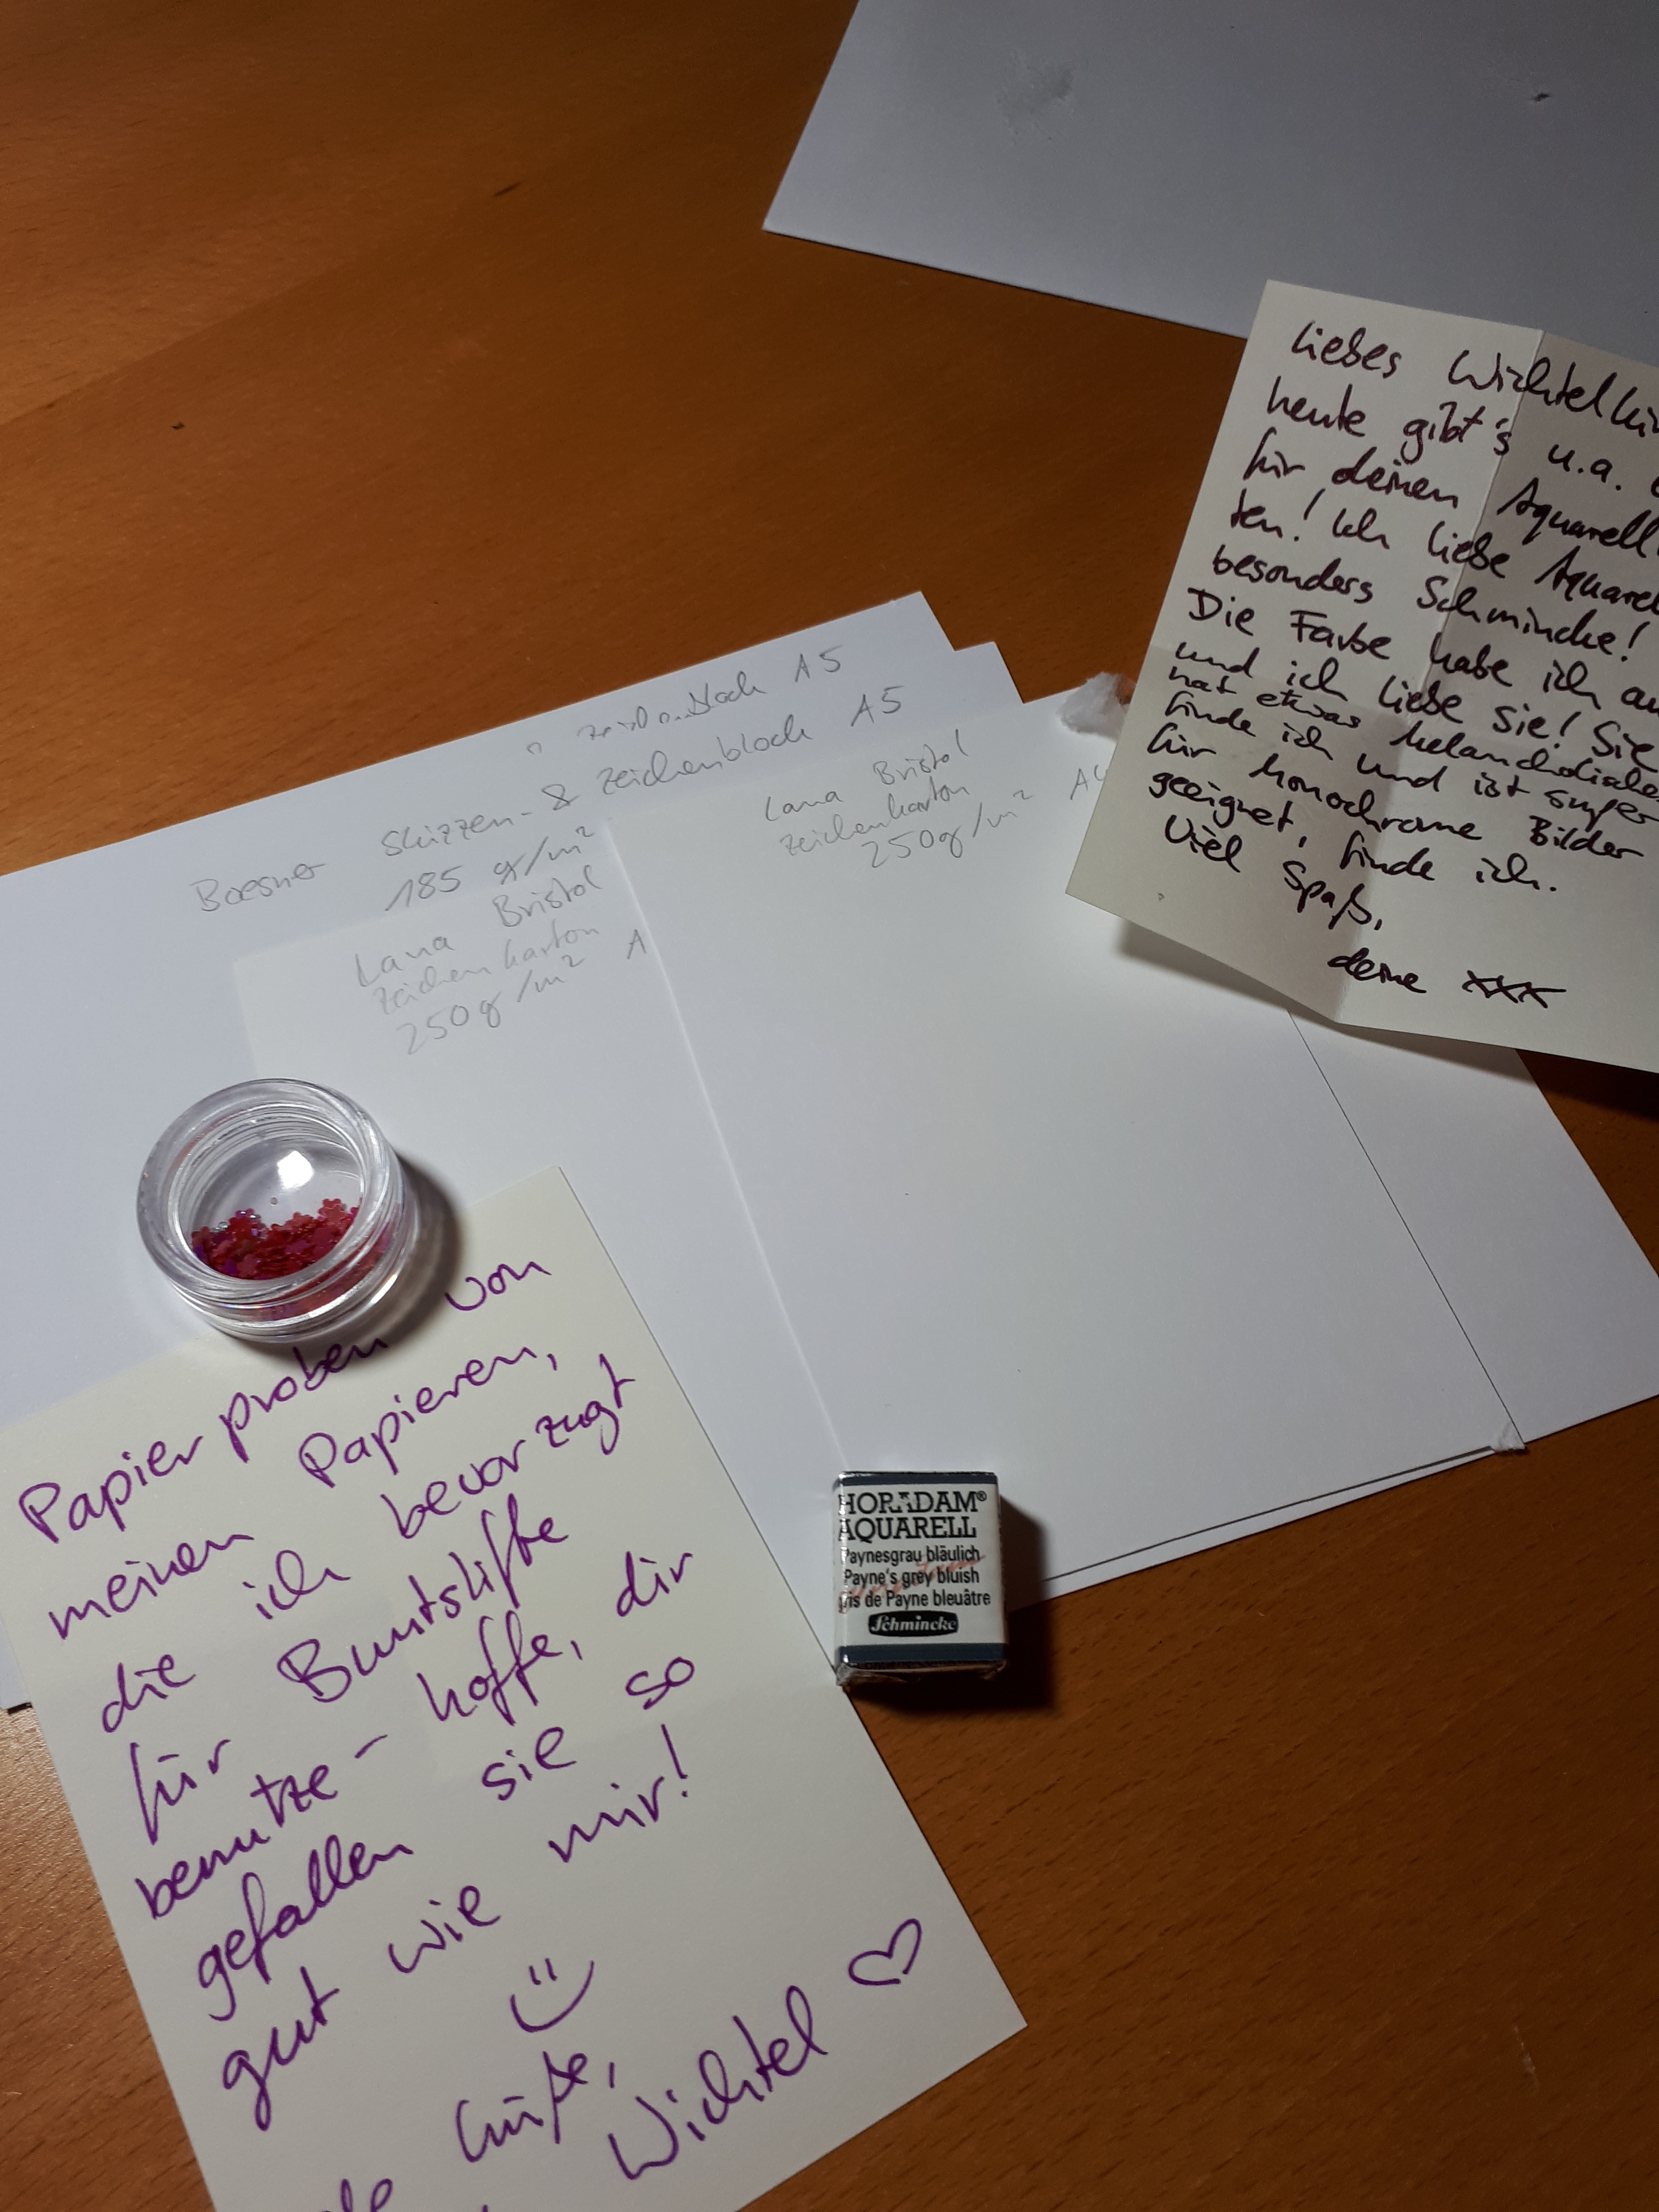 Liebes Wichtelkin
heute gibt's u.a.
für deinen Aquarell
ten! Ich liebe Aquarel
besonders Schmincke!
Die Farbe habe ich au
und ich liebe sie! Sie
hat etwas melancholisches
finde ich und ist super
für monochrome Bilder
geeignet, finde ich.
Viel Spaß,
deine xxx
A5
Boesner Skizzen- & Zeichenblock A5
185 g/m²
Lana Bristol
Zeichenkarton
250g/m² A
Lana Bristol
Zeichenkarton
250g/m² A4
Papierproben von
meinen Papieren,
die ich bevorzugt
für Buntstifte
benutze - hoffe, dir
gefallen sie so
gut wie mir!
Wichtel
HORADAM®
AQUARELL
Paynesgrau bläulich
Payne's grey bluish
gris de Payne bleuâtre
Schmincke